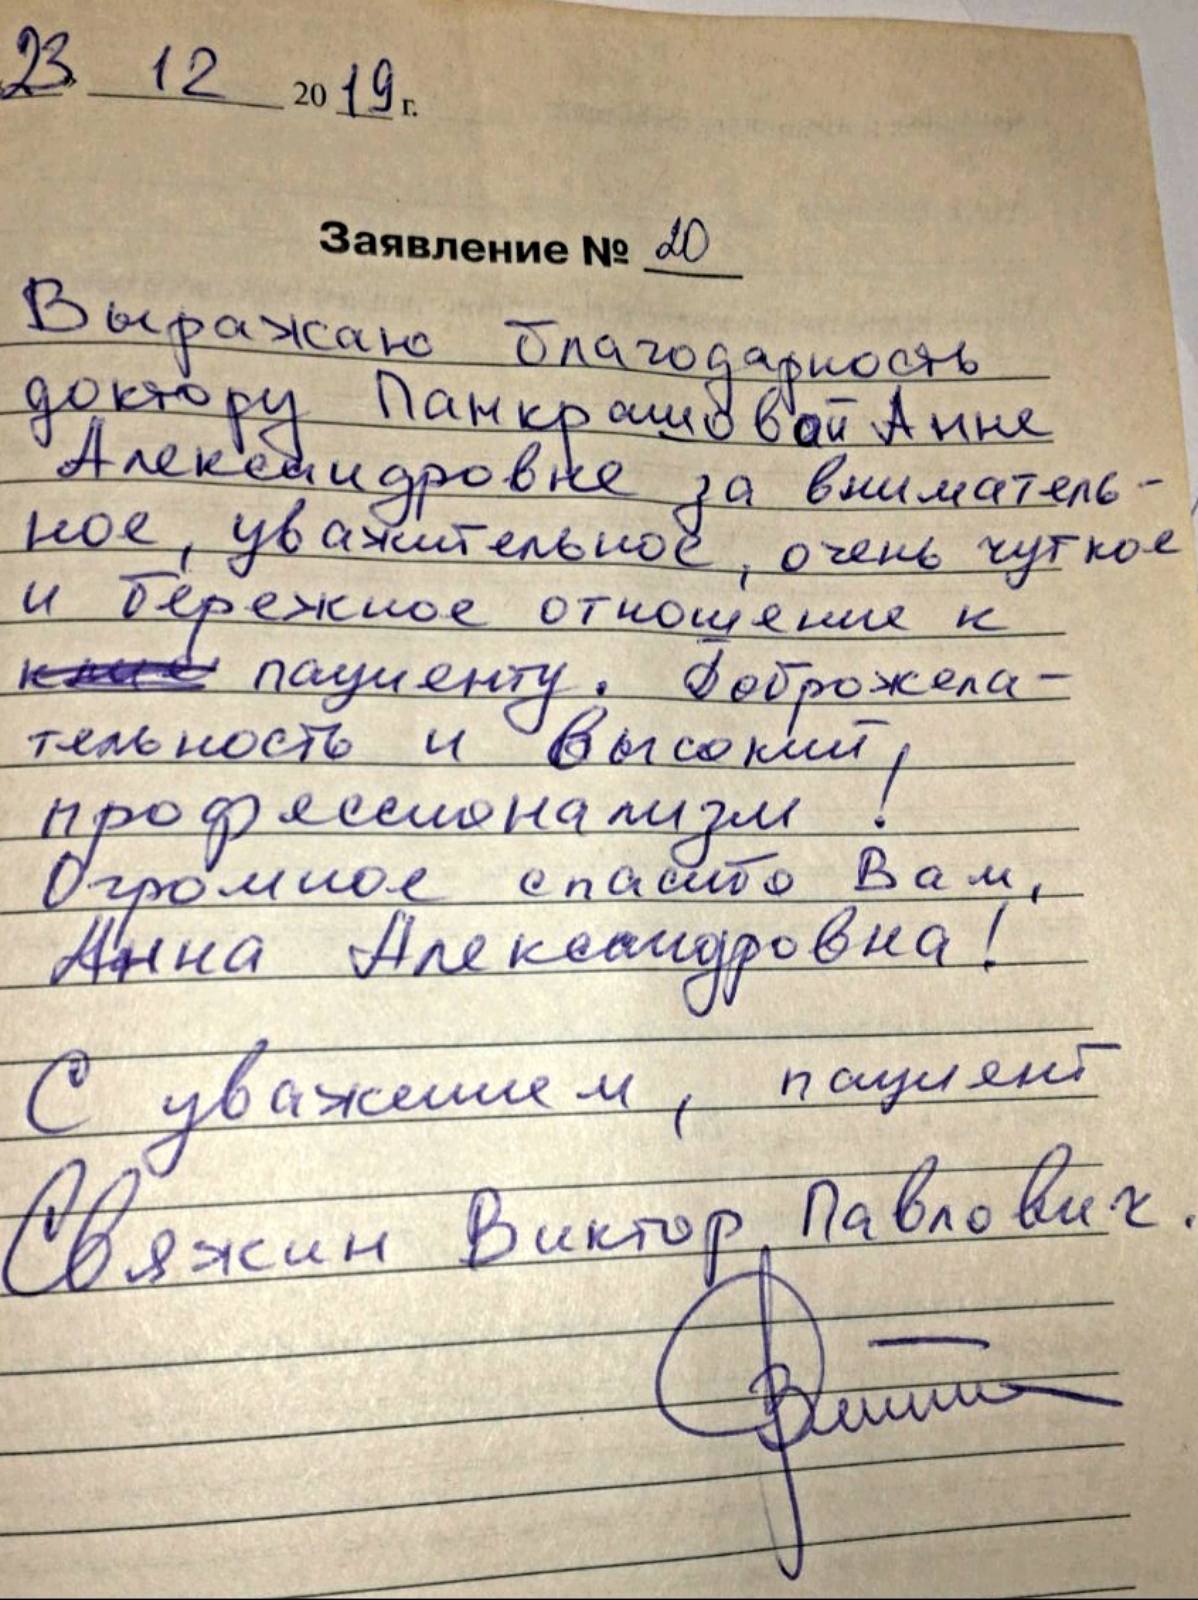 23 12 2019 г.
Заявление № 20
Выражаю благодарность
доктору Панкрашовой Анне
Александровне за вниматель-
ное, уважительное, очень чуткое
и бережное отношение к
пациенту. Доброжела-
тельность и высокий
профессионализм!
Огромное спасибо Вам,
Анна Александровна!
С уважением, пациент
Свяжин Виктор Павлович.